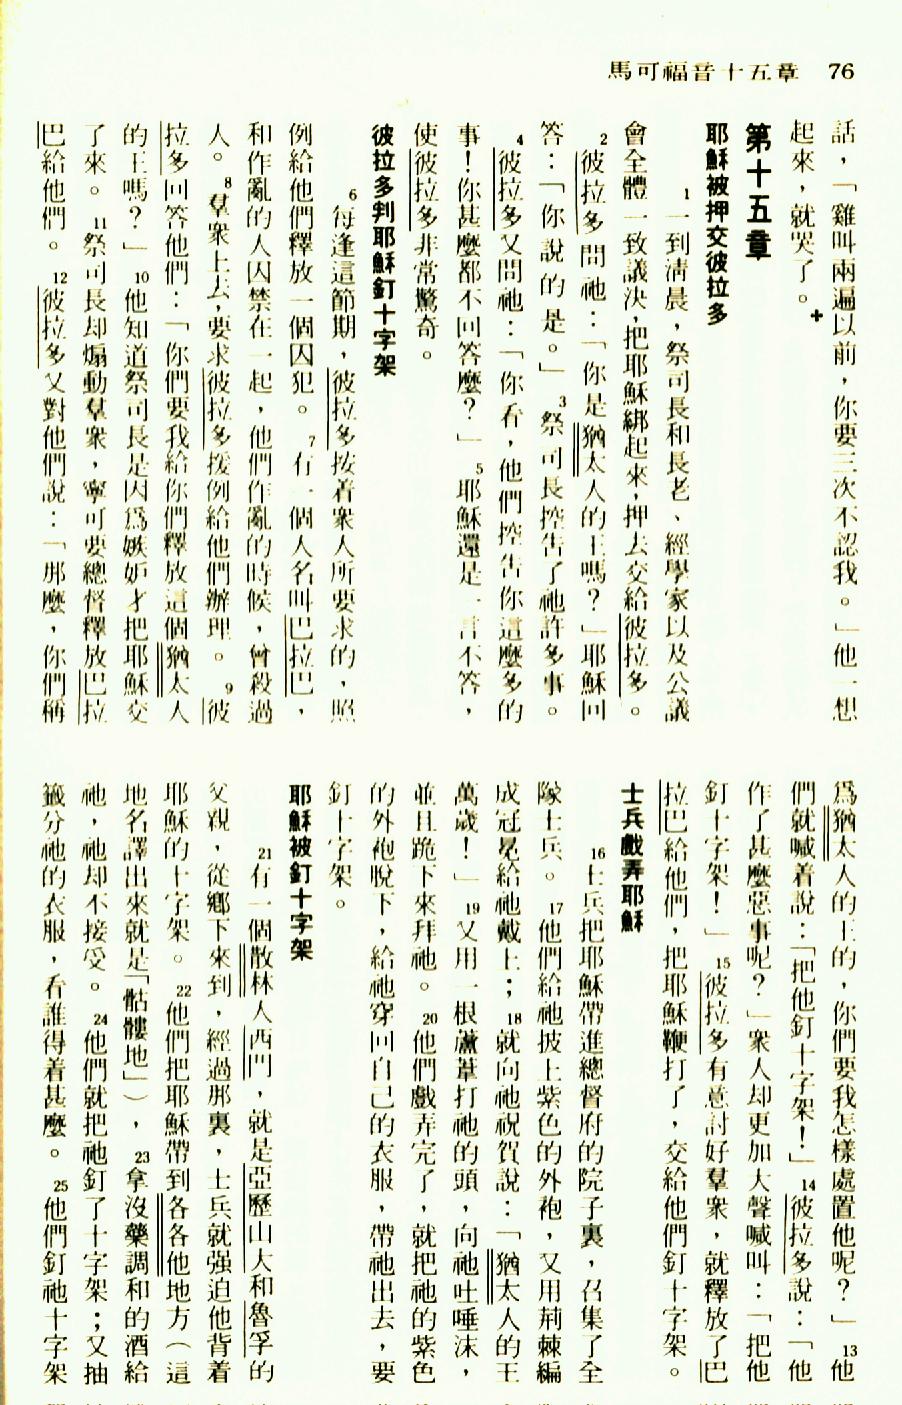 馬可福音十五章 76
話，「雞叫兩遍以前，你要三次不認我。」他一想
起來，就哭了。
第十五章
耶穌被押交彼拉多
1 一到清晨，祭司長和長老、經學家以及公議
會全體一致議決，把耶穌綁起來，押去交給彼拉多。
2 彼拉多問祂：「你是猶太人的王嗎？」耶穌回
答：「你說的是。」 3 祭司長控告了祂許多事。
4 彼拉多又問祂：「你看，他們控告你這麼多的
事！你甚麼都不回答麼？」 5 耶穌還是一言不答，
使彼拉多非常驚奇。
彼拉多判耶穌釘十字架
6 每逢這節期，彼拉多按着衆人所要求的，照
例給他們釋放一個囚犯。 7 有一個人名叫巴拉巴，
和作亂的人囚禁在一起，他們作亂的時候，曾殺過
人。 8 羣衆上去，要求彼拉多援例給他們辦理。 9 彼
拉多回答他們：「你們要我給你們釋放這個猶太人
的王嗎？」 10 他知道祭司長是因爲嫉妒才把耶穌交
了來。 11 祭司長却煽動羣衆，寧可要總督釋放巴拉
巴給他們。 12 彼拉多又對他們說：「那麼，你們稱
爲猶太人的王的，你們要我怎樣處置他呢？」 13 他
們就喊着說：「把他釘十字架！」 14 彼拉多說：「他
作了甚麼惡事呢？」衆人却更加大聲喊叫：「把他
釘十字架！」 15 彼拉多有意討好羣衆，就釋放了巴
拉巴給他們，把耶穌鞭打了，交給他們釘十字架。
士兵戲弄耶穌
16 士兵把耶穌帶進總督府的院子裏，召集了全
隊士兵。 17 他們給祂披上紫色的外袍，又用荊棘編
成冠冕給祂戴上； 18 就向祂祝賀說：「猶太人的王
萬歲！」 19 又用一根蘆葦打祂的頭，向祂吐唾沫，
並且跪下來拜祂。 20 他們戲弄完了，就把祂的紫色
的外袍脫下，給祂穿回自己的衣服，帶祂出去，要
釘十字架。
耶穌被釘十字架
21 有一個散林人西門，就是亞歷山大和魯孚的
父親，從鄉下來到，經過那裏，士兵就强迫他背着
耶穌的十字架。 22 他們把耶穌帶到各各他地方（這
地名譯出來就是「骷髏地」）， 23 拿沒藥調和的酒給
祂，祂却不接受。 24 他們就把祂釘了十字架；又抽
籤分祂的衣服，看誰得着甚麼。 25 他們釘祂十字架